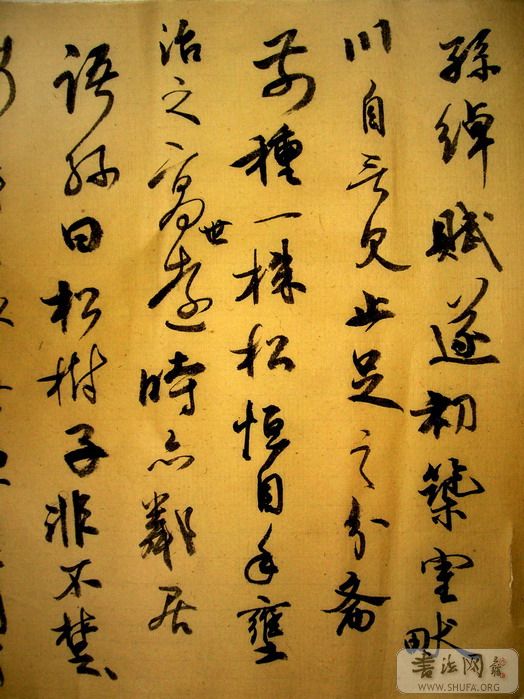 孫綽賦遂初築室畎
川自言見止足之分齋
前種一株松恒自手壅
治之高世遠時亦鄰居
語孫曰松樹子非不楚
書法网
WWW.SHUFA.ORG